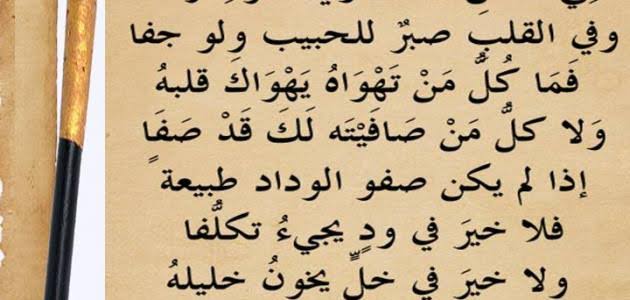 وفي القلبِ صبرٌ للحبيب ولو جفا
فَمَا كُلُّ مَنْ تَهْوَاهُ يَهْوَاكَ قلبهُ
وَلا كلُّ مَنْ صَافَيْتَه لَكَ قَدْ صَفَاً
إذا لم يكن صفو الوداد طبيعة
فلا خيرَ في ودٍ يجيءُ تكلُّفا
ولا خيرَ في خلٍّ يخونُ خليلهُ